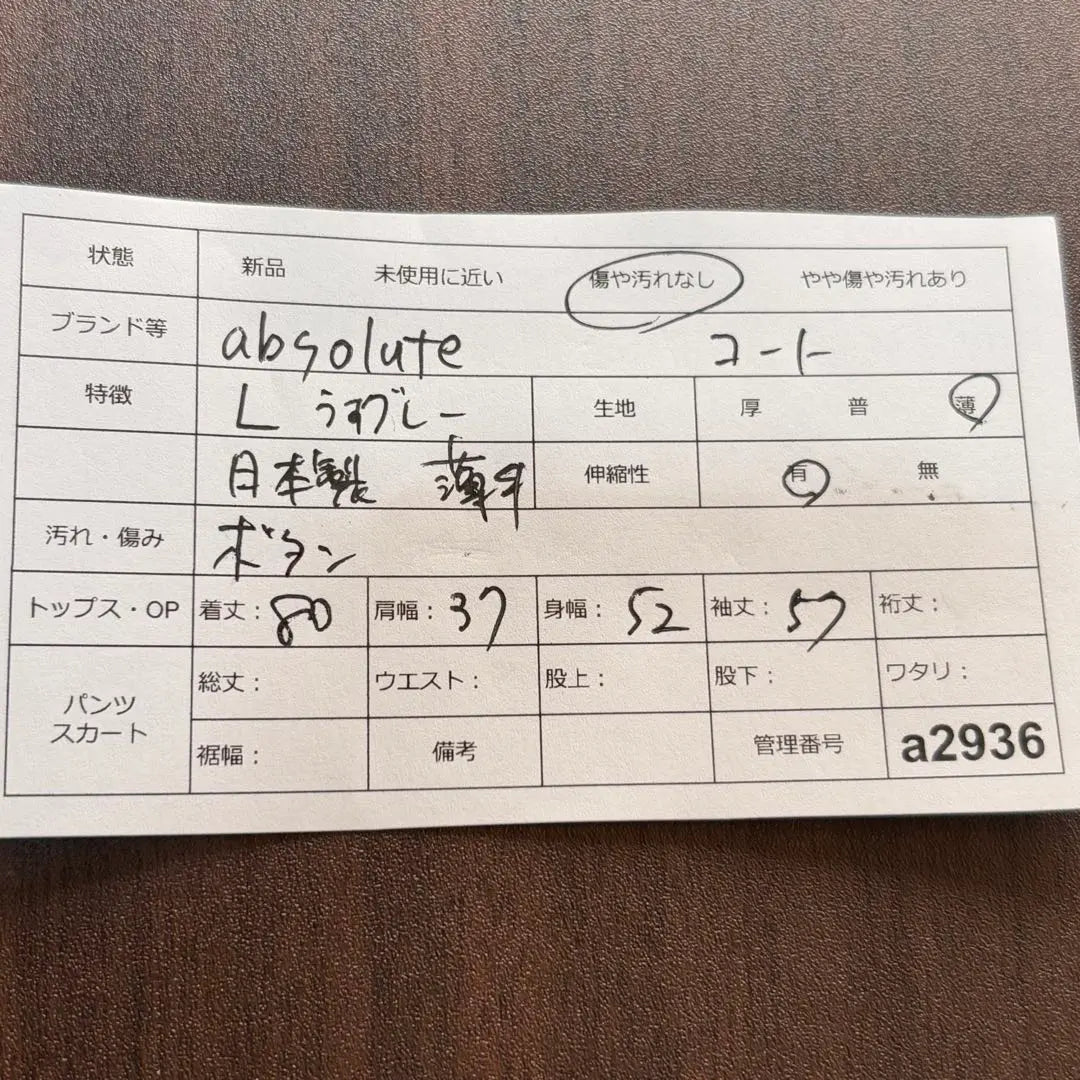 状態 新品 未使用に近い 傷や汚れなし やや傷や汚れあり
ブランド等 absolute コート
特徴 L うすグレー 生地 厚 普 薄
日本製 薄手 伸縮性 有 無
汚れ・傷み ボタン
トップス・OP 着丈: 80 肩幅: 37 身幅: 52 袖丈: 57 裄丈:
パンツ スカート 総丈: ウエスト: 股上: 股下: ワタリ:
裾幅: 備考 管理番号 a2936